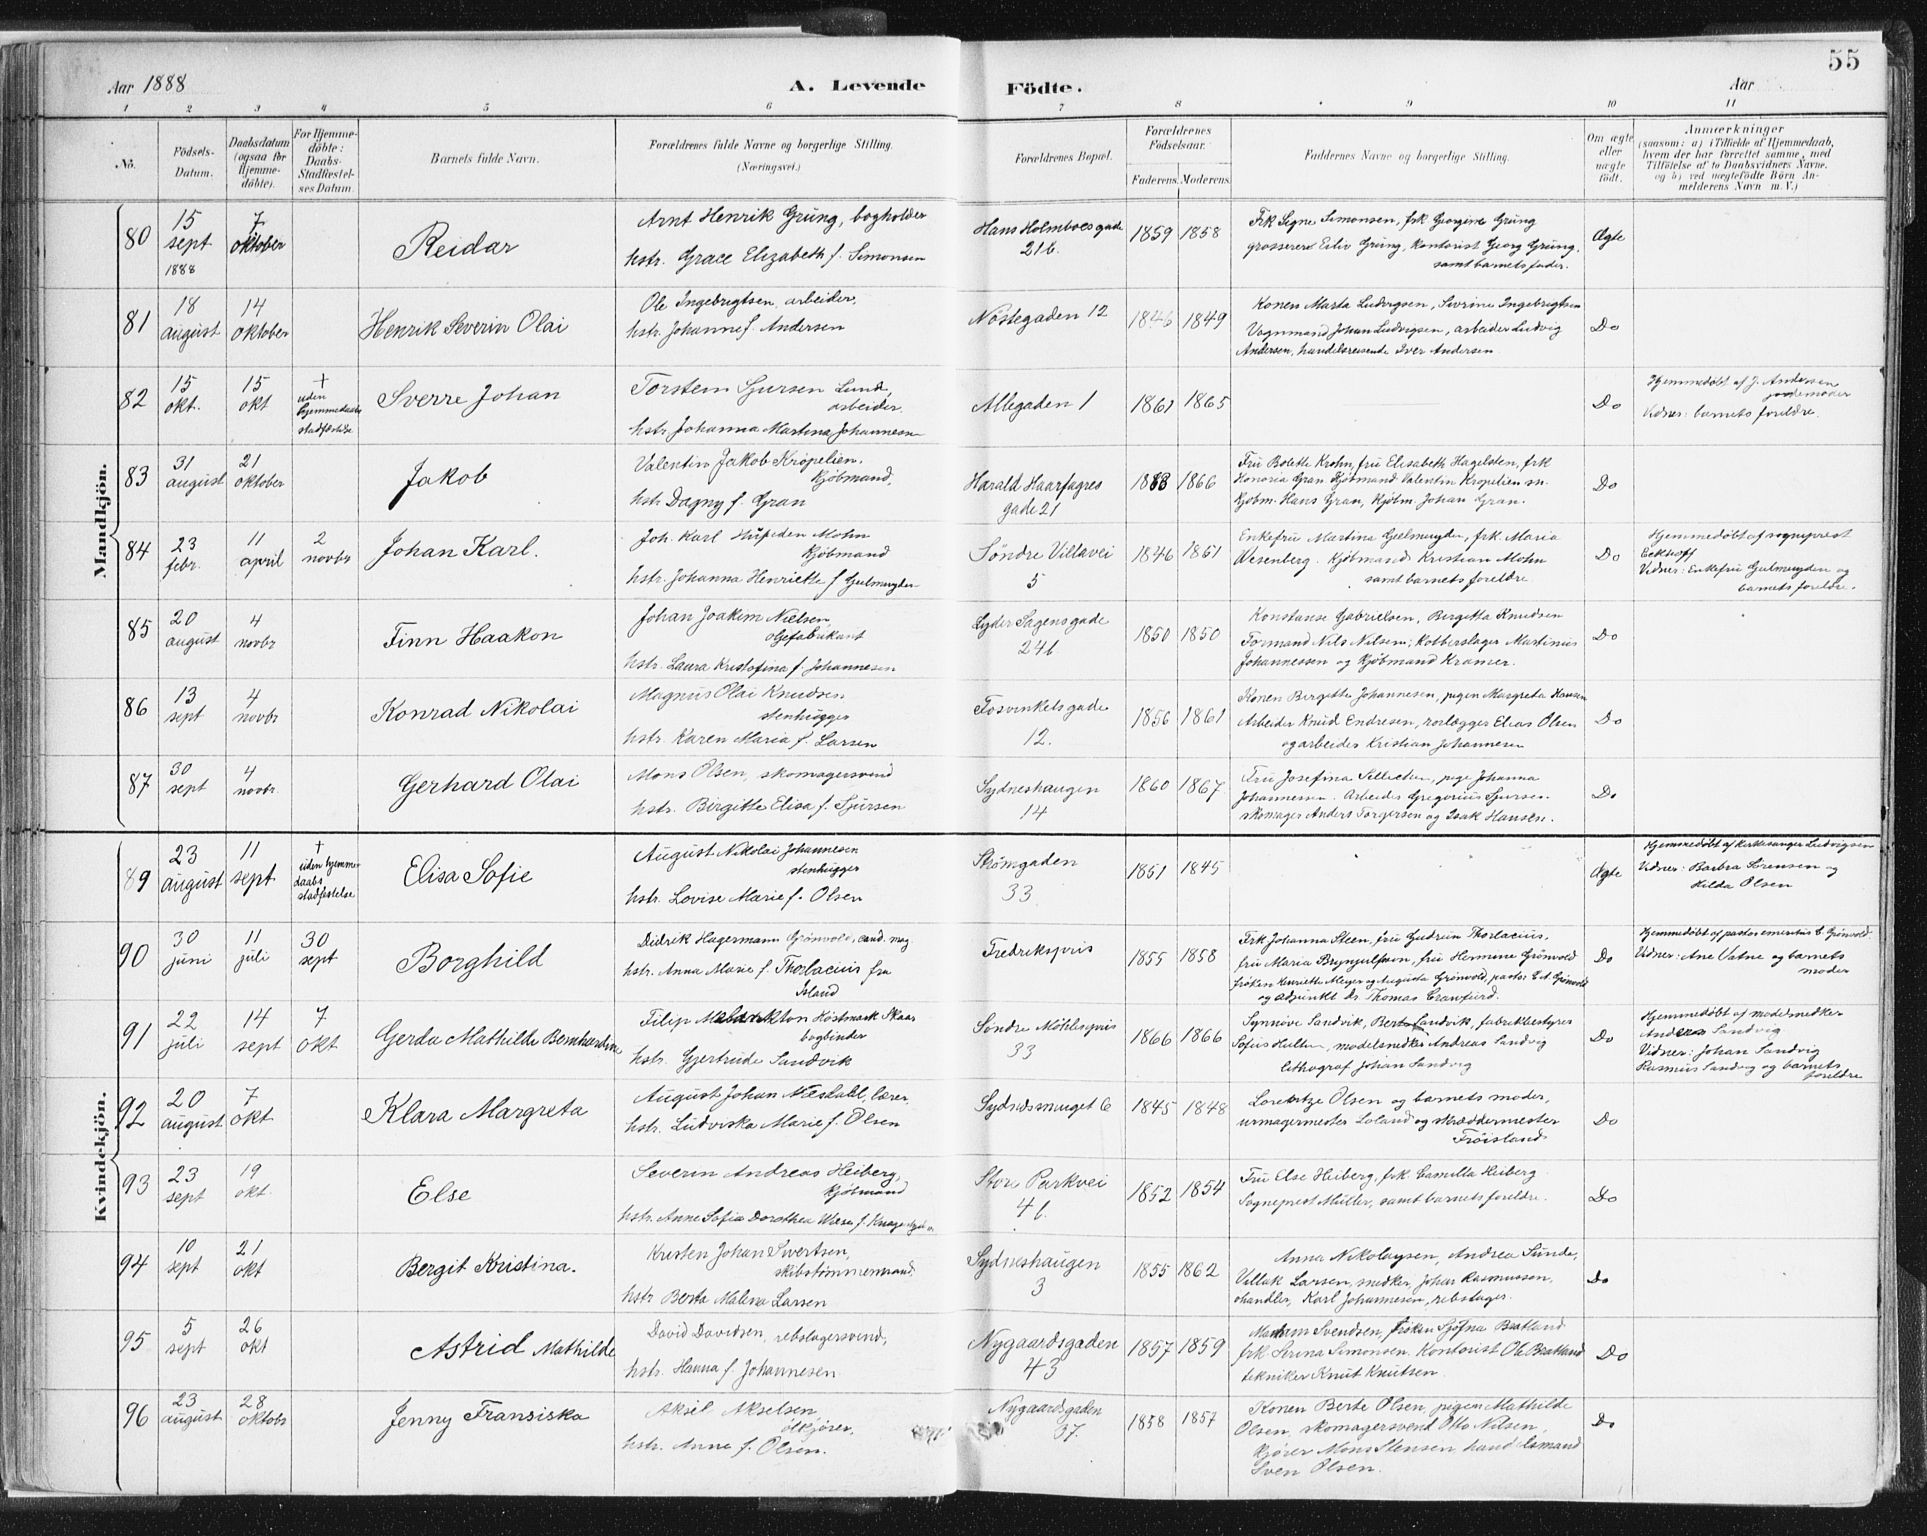 55
Aar 1888
A. Levende Födte.
Aar
1 2 3 4 5 6 7 8 9 10 11
No.
Födsels-Datum.
Daabsdatum (ogsaa for Hjemme-döbte).
For Hjemme-döbte: Daabs-Stadfæstel-ses Datum.
Barnets fulde Navn.
Forældrenes fulde Navne og borgerlige Stilling.
(Næringsvei.)
Forældrenes Bopæl.
Forældrenes Födselsaar.
Faderens. Moderens.
Faddernes Navne og borgerlige Stilling.
Om ægte eller uægte födt.
Anmærkninger
(saasom: a) i Tilfælde af Hjemmedaab, hvem der har forrettet samme, med Tilföielse af to Daabsvidners Navne, og b) ved uægtefödte Börn An-melderens Navn m. V.)
Mandkjön.
80 15 sept 1888 7 oktober Reidar
Arnt Henrik Grung, bogholder
hstr. Grace Elizabeth f. Simonsen
Hans Holmboesgade 21b. 1859 1858
Frk Signe Simonsen, frk Georgine Grung
grosserer Eiliv Grung, kontorist Georg Grung,
samt barnets fader.
Ægte
81 18 august 14 oktober Henrik Severin Olai
Ole Ingebrigtsen, arbeider,
hstr. Johanne f. Andersen
Nøstegaden 12 1846 1849
Konen Marta Ludvigsen, Sivrine Ingebrigtsen
Vognmand Johan Ludvigsen, arbeider Ludvig
Andersen, handelsreisende Iver Andersen.
Do
82 15 okt. 15 okt † uden hjemmedaabs stadfæstelse Sverre Johan
Torstein Sjursen Lund, arbeider.
hstr. Johanna Martina Johannessen
Allegaden 1 1861 1865
Do
Hjemmedøbt af J. Andersen jordemoder
Vidner: barnets foreldre.
83 31 august 21 oktober Jakob
Valentin Jakob Krøpelien, kjøbmand,
hstr. Dagny f. Gran
Harald Haarfagres gade 21 1866
Fru Bolette Krohn, fru Elisabeth Hagelsten, frk
Honoria Gran Kjøbmand Valentin Krøpelien sn.
Kjøbm. Hans Gran, kjøbm. Johan Gran.
Do
84 23 febr. 11 april 2 novbr Johan Karl.
Joh. Karl Hüpeden Mohn kjøbmand
hstr. Johanna Henriette f Gulmuyden
Søndre Villavei 5 1846 1861
Enkefru Martina Gulmuyden, frk. Maria
Wesenberg. Kjøbmand Kristian Mohn
samt barnets foreldre.
Do
Hjemmedøbt af sogneprest
Eckhoff
Vidner: Enkefru Gulmuyden og
barnets foreldre.
85 20 august 4 novbr Finn Haakon
Johan Joakim Nielsen, oljefabrikant
hstr. Laura Kristofina f. Johannesen
Lyder Sagensgade 24b 1850 1850
Konstanse Gabrielsen, Bergitta Knudsen
Formand Nils Nilsen, kobberslager Martinius
Johannessen og kjøbmand Kramer.
Do
86 13 sept 4 novbr Konrad Nikolai
Magnus Olai Knudsen stenhugger
hstr. Karen Maria f. Larsen
Fosvinkelsgade 12. 1856 1861
Konen Birgitte Johannesen, pigen Margreta Hansen
Arbeider Knud Endresen, rørlægger Elias Olsen
og arbeider Kristian Johannesen
Do
87 30 sept 4 novbr. Gerhard Olai
Mons Olsen, skomagersvend
hstr. Birgitte Elisa f. Sjursen
Sydneshaugen 14 1860 1867
Fru Josefina, pige Johanna
Johannesen. Arbeider Gregorius Sjursen.
skomager Anders Torgersen og Isak Hansen.
Do
Kvindekjön.
89 23 august 11 sept † uden hjemme daabs stadfestelse Elisa Sofie
August Nikolai Johannesen stenhugger
hstr. Lovise Marie f. Olsen
Strømgaden 33 1851 1845
Ægte
Hjemmedøbt af kirkesanger Ludvigsen
Vidner: Barbra Sørensen og
Hilda Olsen
90 30 juni 11 juli 30 sept Borghild
Didrik Hagermann Grønvold, cand. mag.
hstr. Anna Marie f. Thorlacius fra Island
Fredrikspris 1855 1858
Frk Johanna Steen, fru Gudrun Thorlacius,
fru Maria Brynjulfsen, fru Hermine Grønvold
frøken Henriette Meyer og Augusta Grønvold, pastor C. A. Grønvold
og adjunkt dr. Thomas Crawfurd.
Do
Hjemmedøbt af pastor emeritus C. Grønvold.
Vidner: Ane Vatne og barnets
moder
91 22 juli 14 sept 7 okt Gerda Mathilde Bernhardine
Filip Høstmark Skaar bogbinder
hstr. Gjertrude Sandvik
Søndre Møhlenpris 33 1866 1866
Synnøve Sandvik, Berta Sandvik, fabrikbestyrer
Sofus Hulten, modelsnedker Andreas Sandvig
lithograf Johan Sandvig
Do
Hjemmedøbt af modelsnedker
Andreas Sandvig
Vidner: Johan Sandvig
Rasmus Sandvig og barnets
foreldre
92 20 august 7 okt Klara Margreta
August Johan Næstahl, lærer,
hstr. Ludviska Marie f. Olsen
Sydnessmuget 6 1845 1848
Lorentze Olsen og barnets moder,
urmagermester Loland og skræddermester
Frøisland
Do
93 23 sept 19 okt. Else
Severin Andreas Heiberg, kjøbmand
hstr. Anne Sofia Dorothea Wiese f.
Store Parkvei 4b. 1852 1854
Fru Else Heiberg, frk. Camilla Heiberg
Sogneprest Müller, samt barnets foreldre.
Do
94 10 sept 21 okt Bergit Kristina.
Kristen Johan Sivertsen, skibstømmermand.
hstr Berta Malena Larsen
Sydneshaugen 3 1855 1862
Anna Nikolaysen, Andrea Sunde,
Villak Larsen, snedker, Johan Rasmussen,
handler, Karl Johannesen, rebslager.
Do
95 5 sept 26 okt Astrid Mathilde
David Davidsen, rebslagersvend,
hstr. Hanna f Johannesen
Nygaardsgaden 43 1857 1859
Madam Svendsen, frøken Sjøfna Bratland
frk. Serina Simonsen. Kontorist Ole Bratland
tekniker Knut Knutsen.
Do
96 23 august 28 oktobr Jenny Fransiska
Aksel Akselsen ølkjører,
hstr. Anne f. Olsen.
Nygaardsgaden 37. 1858 1857
Konen Berte Olsen, pigen Mathilde
Olsen, skomagersvend Otto Nilsen,
kjører Mons Stensen, handelsmand
Sven Olsen.
Do